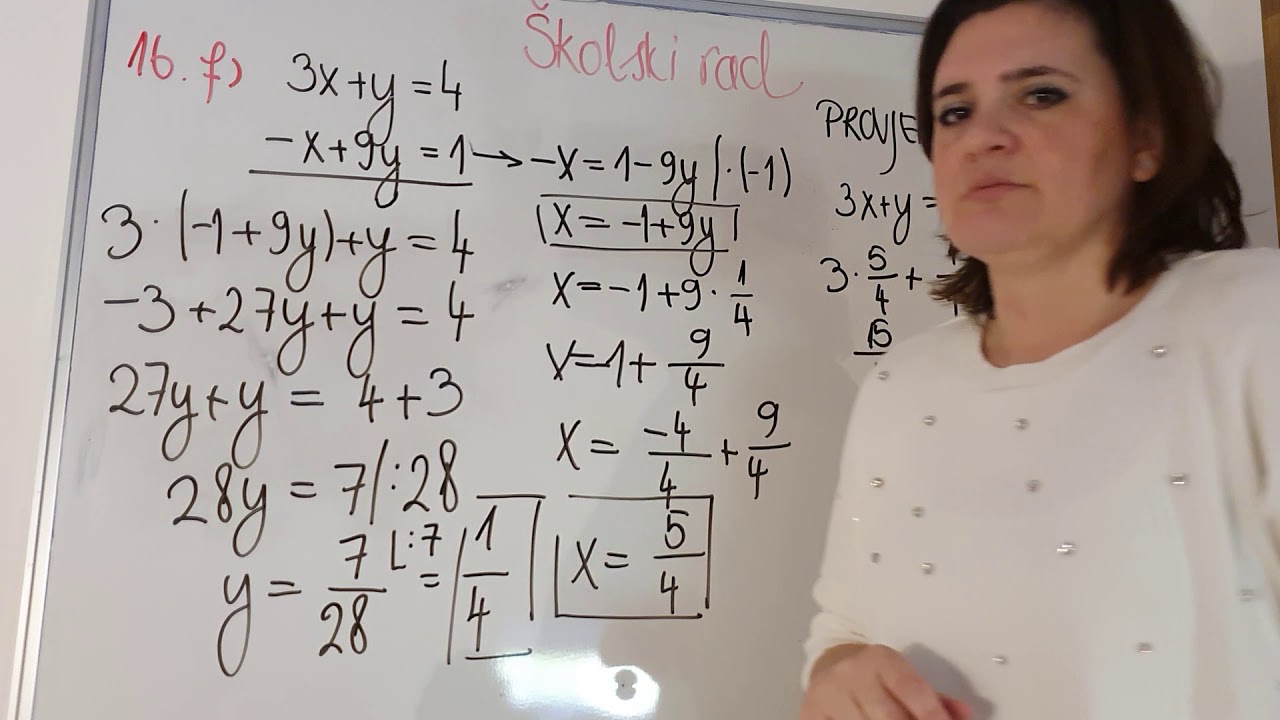 Školski rad
16. f)
3x+y=4
-x+9y=1 → -x=1-9y |·(-1)
3·(-1+9y)+y=4
-3+27y+y=4
27y+y=4+3
28y=7 |:28
y=7/28 |:7 = 1/4
x=-1+9y
x=-1+9·1/4
x=-1+9/4
x=-4/4+9/4
x=5/4
3x+y=
3·5/4+
15